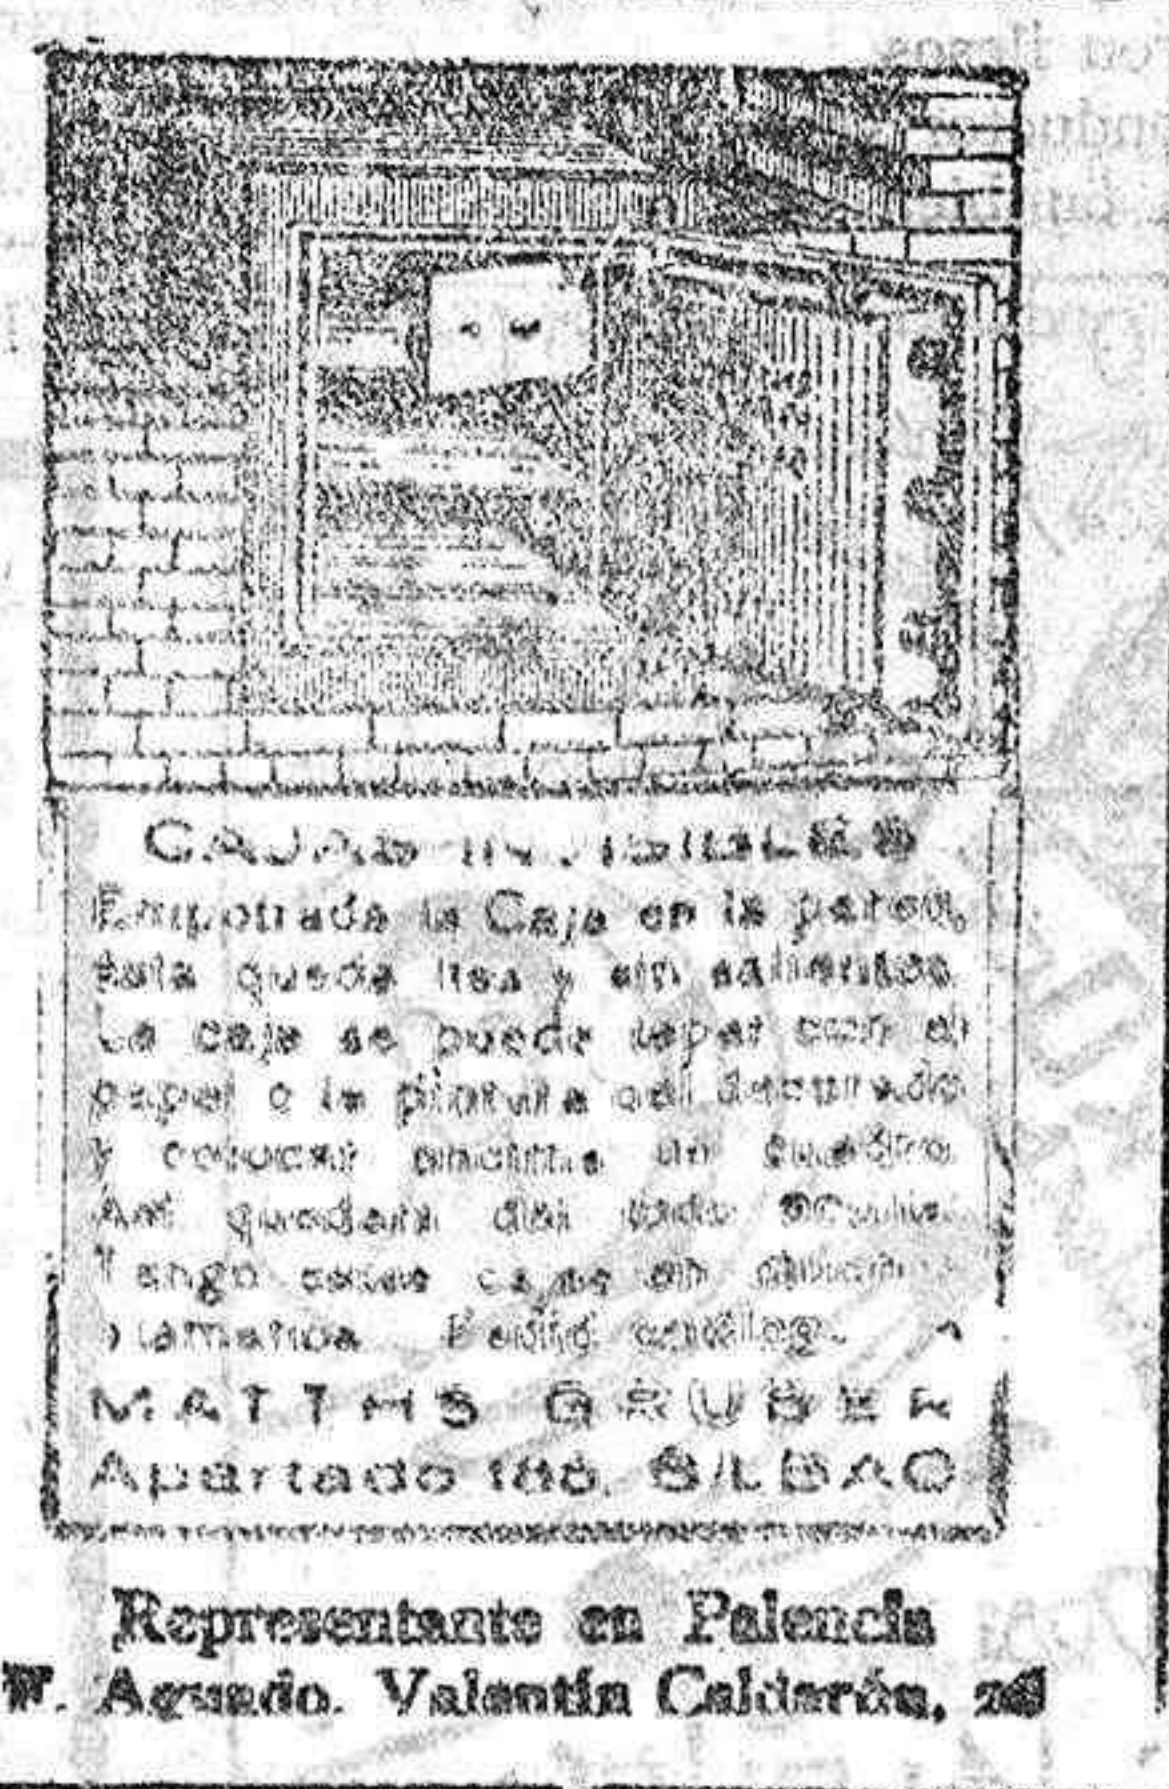 CAJAS INVISIBLES
Empotrada la Caja en la pared,
ésta queda lisa y sin salientes.
La caja se puede tapar con el
papel o la pintura del decorado
y colocar encima un cuadro.
Así quedará del todo oculta.
Tengo estas cajas en
Pedid catálogo a
MATTHS GRUBER
Apartado 185, BILBAO
Representante en Palencia
W. Aguado. Valentín Calderón,